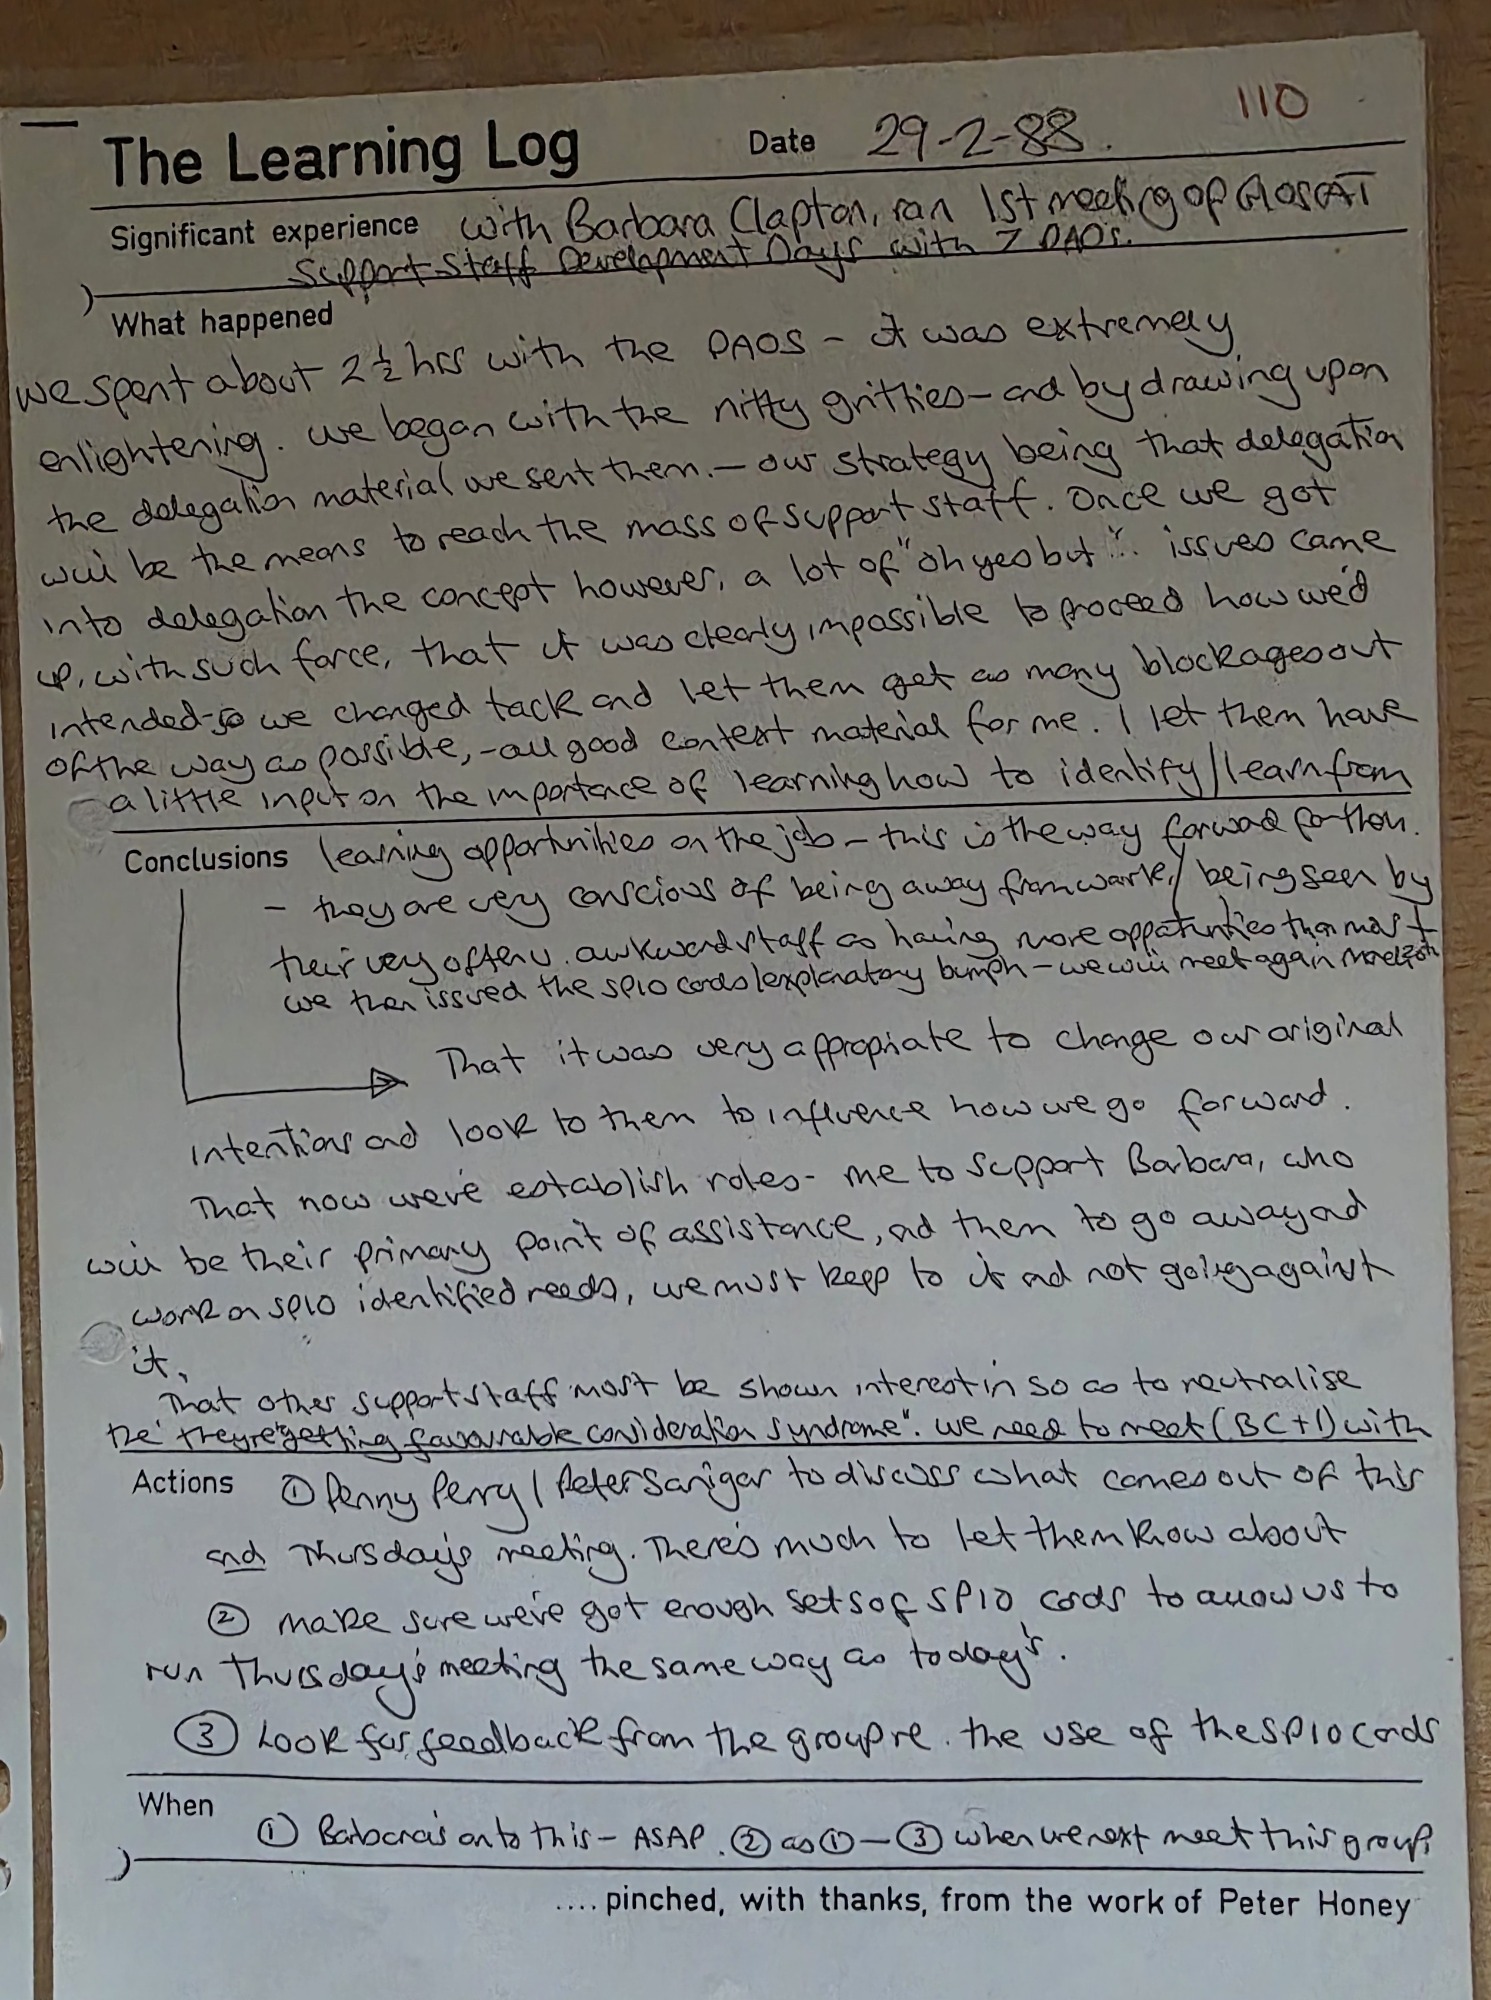 110
The Learning Log Date 29-2-88.
Significant experience with Barbara Clapton, ran 1st meeting of GLOSCAT
Support Staff Development Days with 7 DAOs.
What happened
we spent about 2½ hrs with the DAOS - it was extremely
enlightening. we began with the nitty gritties - and by drawing upon
the delegation material we sent them. - our strategy being that delegation
will be the means to reach the mass of support staff. Once we got
into delegation the concept however, a lot of "oh yes but".. issues came
up, with such force, that it was clearly impossible to proceed how we'd
intended - so we changed tack and let them get as many blockages out
of the way as possible, - all good context material for me. I let them have
a little input on the importance of learning how to identify/learn from
Conclusions learning opportunities on the job - this is the way forward for them.
- they are very conscious of being away from work/being seen by
their very often awkward staff as having more opportunities than most
we then issued the SP10 cards/explanatory bumph - we will meet again March
That it was very appropriate to change our original
intentions and look to them to influence how we go forward.
That now we've establish roles - me to support Barbara, who
will be their primary point of assistance, and them to go away and
work on SP10 identified needs, we must kepp to it and not going against
it.
That other support staff must be shown interest in so as to neutralise
the "they're getting favourable consideration syndrome". we need to meet (BC + I) with
Actions ① Penny Perry / Peter Sanigar to discuss what comes out of this
and Thursday's meeting. There's much to let them know about
② make sure we've got enough sets of SP10 cards to allow us to
run Thursday's meeting the same way as today's.
③ Look for feedback from the group re. the use of the SP10 cards
When
① Barbara's onto this - ASAP. ② as ① - ③ when we next meet this group.
.... pinched, with thanks, from the work of Peter Honey